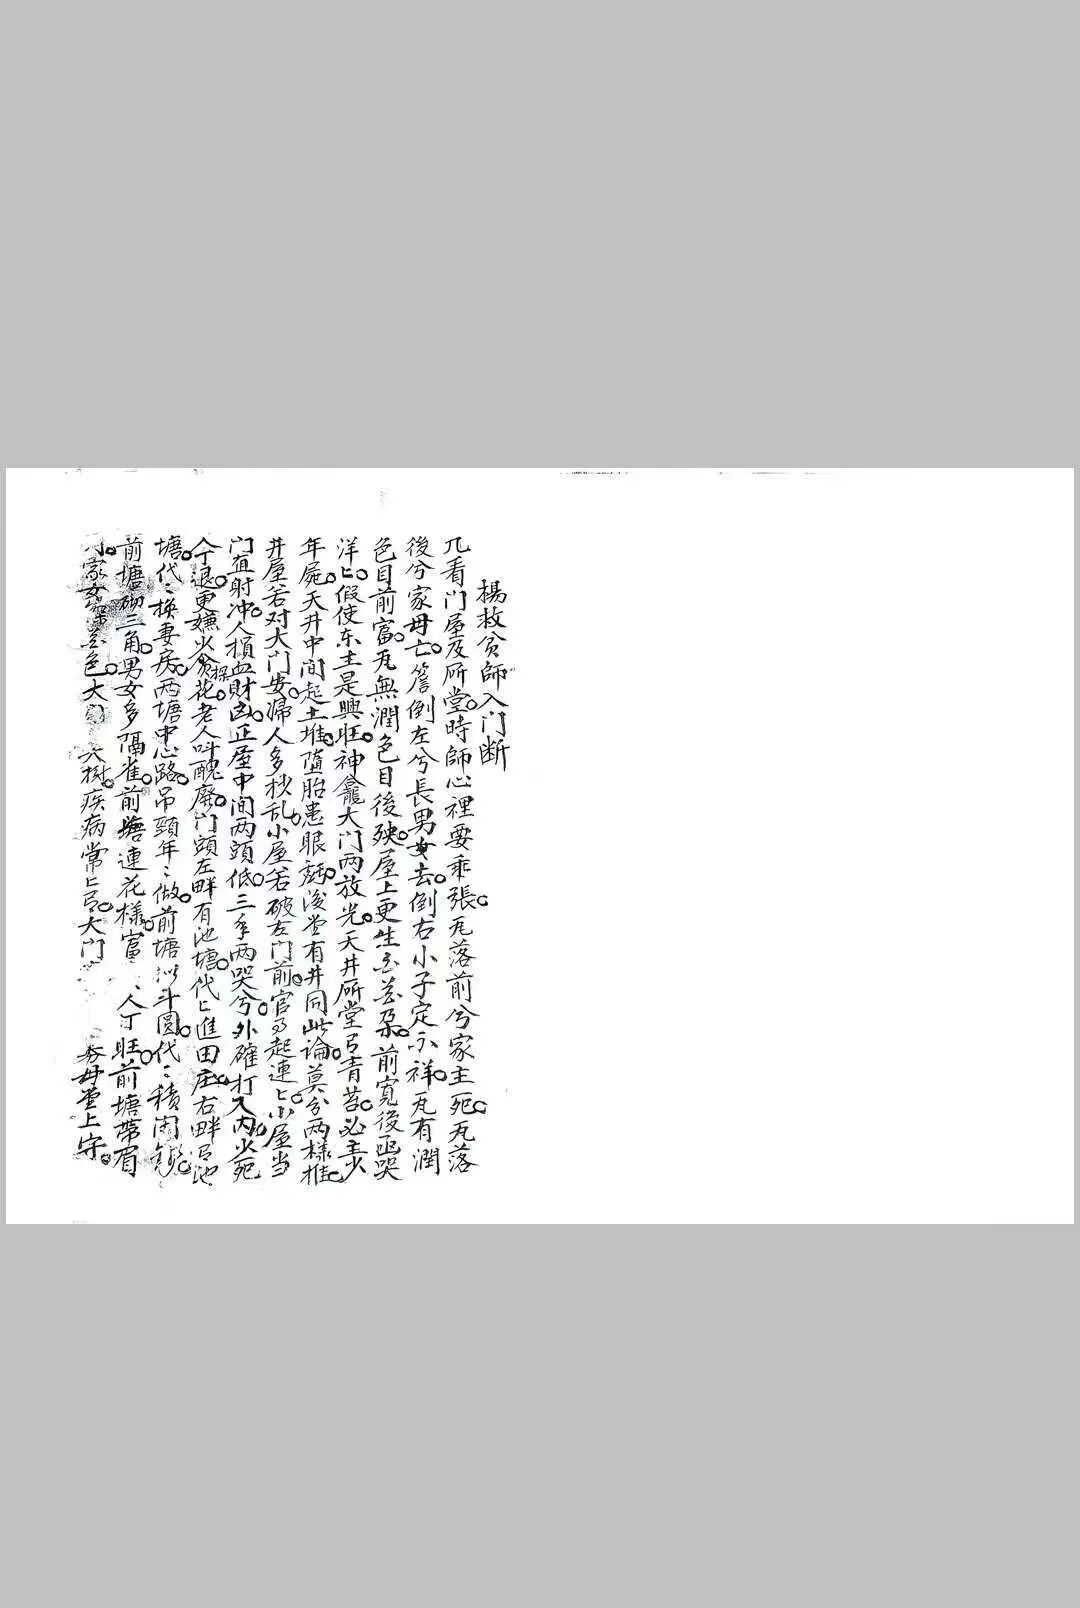 楊救貧師入门断
凢看门屋及所堂。時師心裡要乖張。瓦落前兮家主死。瓦落
後兮家母亡。簷倒左兮長男女去。倒右小子定不祥。瓦有潤
色目前富。瓦無潤色目後殃。屋上更生芝荳朶。前寬後逼哭
洋〻。假使东主是興旺。神龕大门两放光。天井所堂冇青苔。必主少
年屍。天井中间起土堆。墮胎患眼。後堂有井同此論。莫分两樣推。
井屋若对大门安。婦人多杪乱。小屋若破左门前。官司起連〻。小屋当
门直射冲。人損血財凶。正屋中间两頭低。三年两哭兮。外碓打入内。火死
人丁退。更嫌少貧花。老人叫醜廢。门頭左畔有池塘。代〻進田庄。右畔冇池
塘。代〻换妻房。两塘中心路。吊頸年〻做。前塘似斗圓。代〻積闲錢。
前塘砌三角。男女多隔雀。前塘連花樣。富人丁旺。前塘帶眉
家女色。大樹。疾病常〻冇。大门母堂上守。